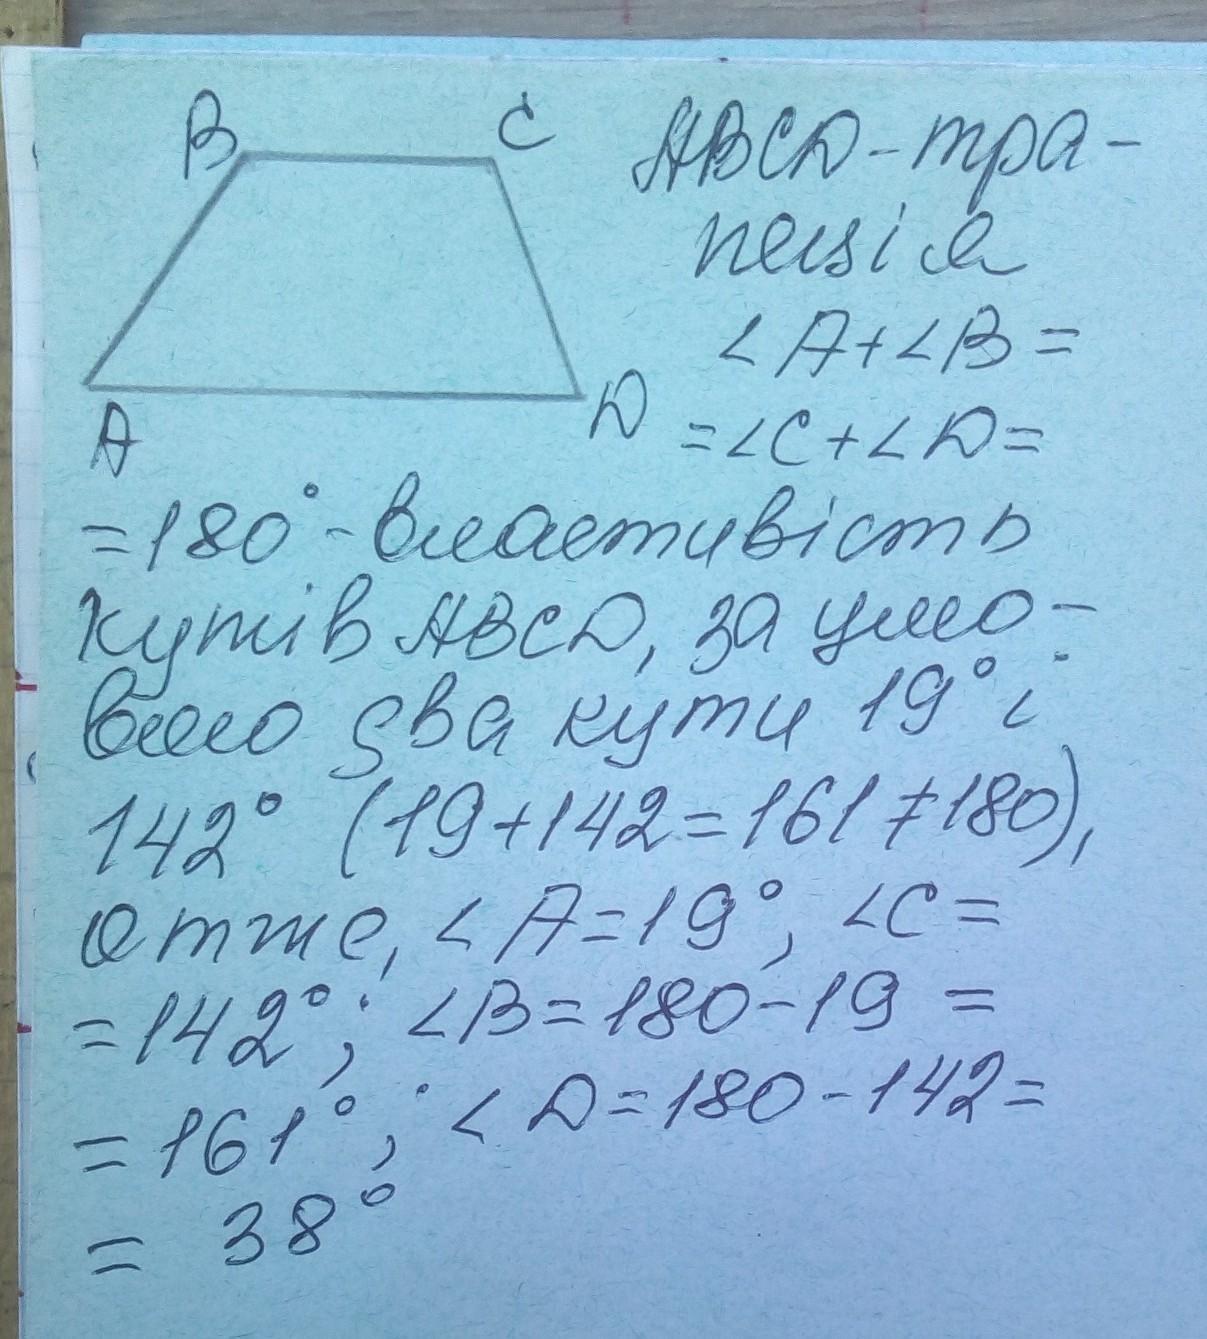 B
C
A
D
ABCD-тра-
пеція
∠A+∠B=
=∠C+∠D=
=180°-властивість
кутів ABCD, за умо-
вою два кути 19° і
142° (19+142=161≠180),
отже, ∠A=19°, ∠C=
=142°; ∠B=180-19=
=161°; ∠D=180-142=
= 38°